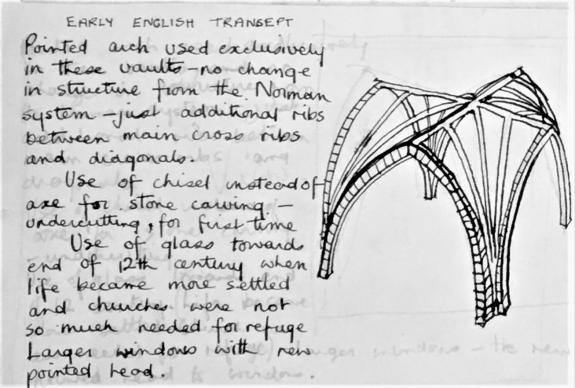 EARLY ENGLISH TRANSEPT
Pointed arch used exclusively
in these vaults - no change
in structure from the Norman
system - just additional ribs
between main cross ribs
and diagonals.
Use of chisel instead of
axe for stone carving -
undercutting, for first time
Use of glass towards
end of 12th century when
life became more settled
and churches were not
so much needed for refuge
Larger windows with new
pointed head.